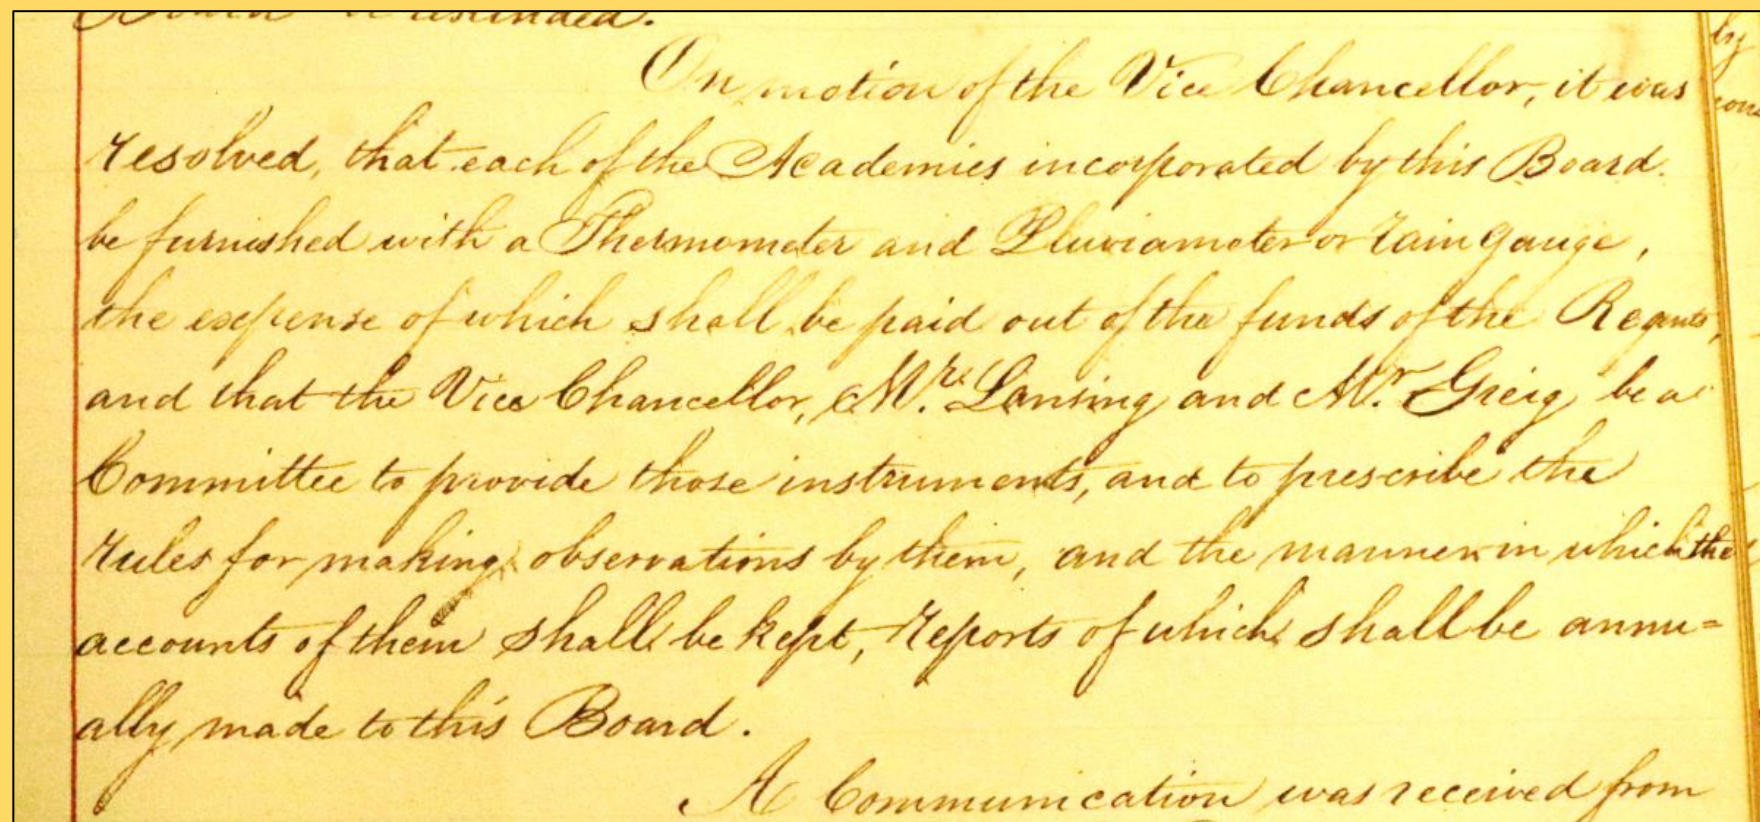 rescinded.
On motion of the Vice Chancellor, it was
resolved, that each of the Academies incorporated by this Board
be furnished with a Thermometer and Pluviameter or rain gauge,
the expense of which shall be paid out of the funds of the Regents,
and that the Vice Chancellor, Mr. Lansing and Mr. Greig be a
Committee to provide those instruments, and to prescribe the
rules for making observations by them, and the manner in which the
accounts of them shall be kept, reports of which shall be annu=
ally made to this Board.
A Communication was received from
by